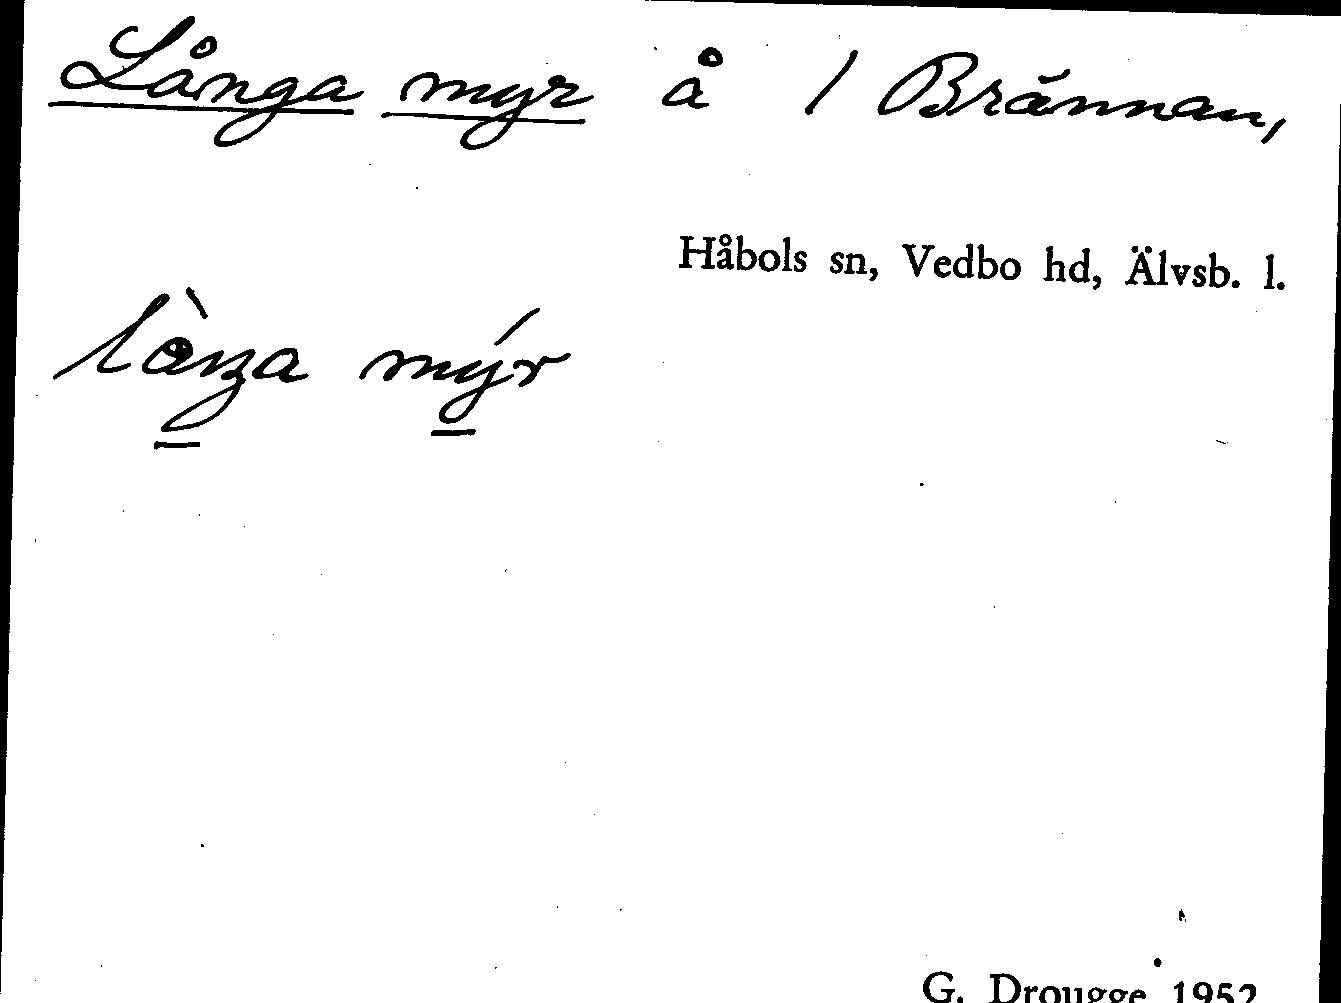 Långa myr å 1 Brännan,
Håbols sn, Vedbo hd, Älvsb. l.
myr
G. Drougge 1952